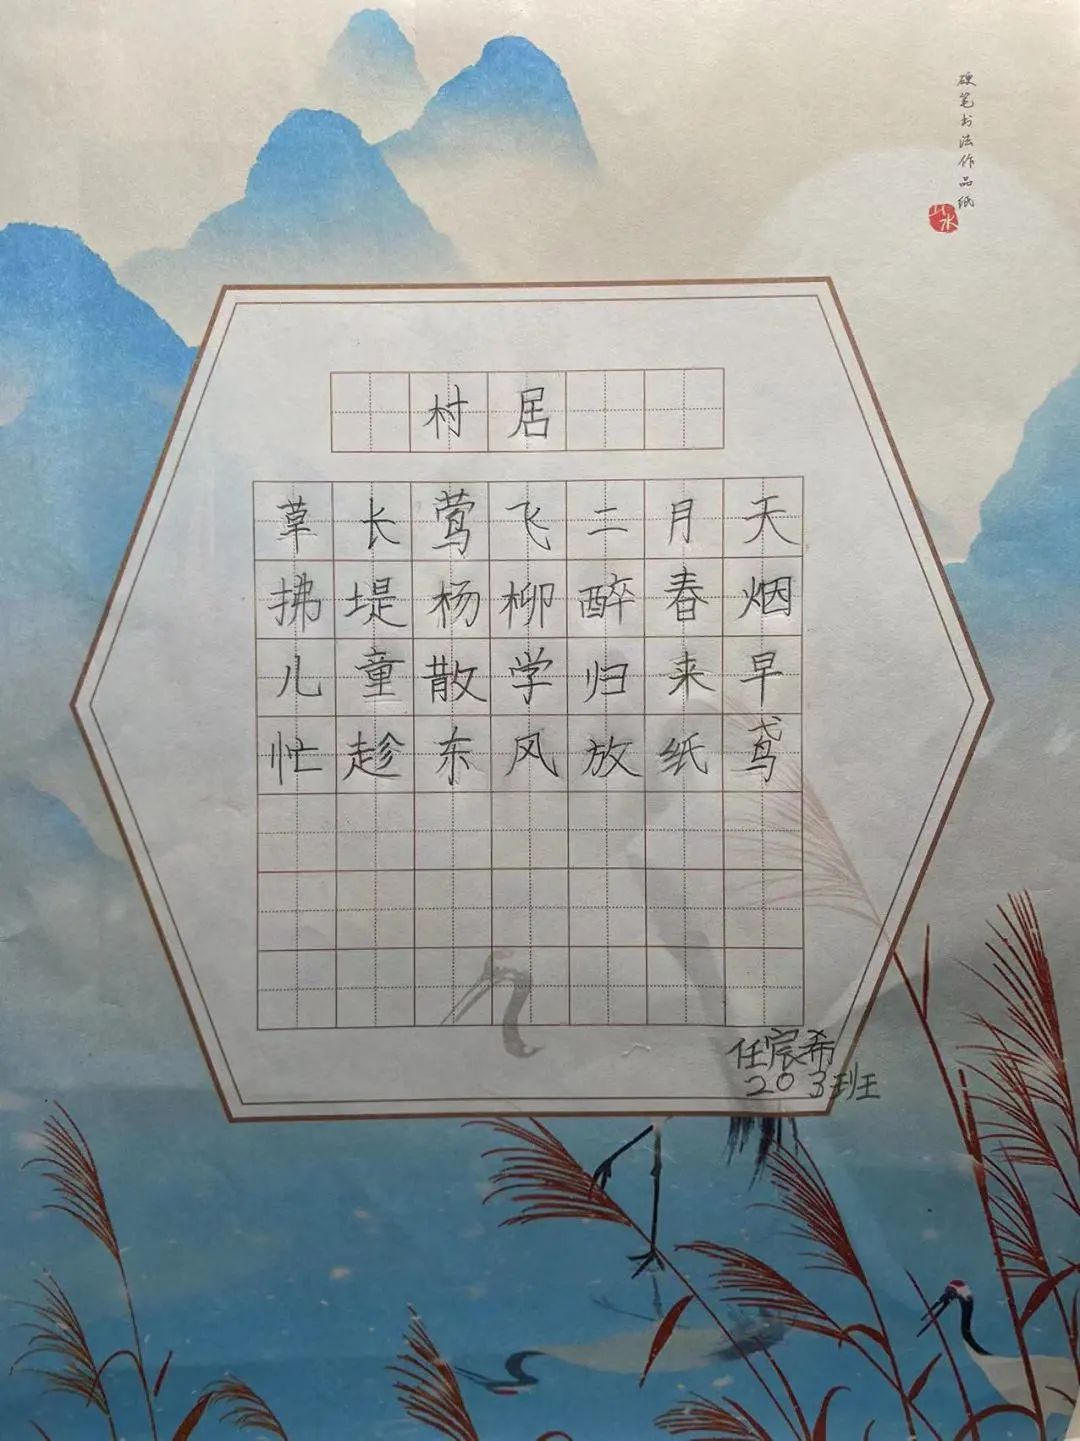 硬笔书法作品纸
山水
村居
草长莺飞二月天
拂堤杨柳醉春烟
儿童散学归来早
忙趁东风放纸鸢
任宸希
203班